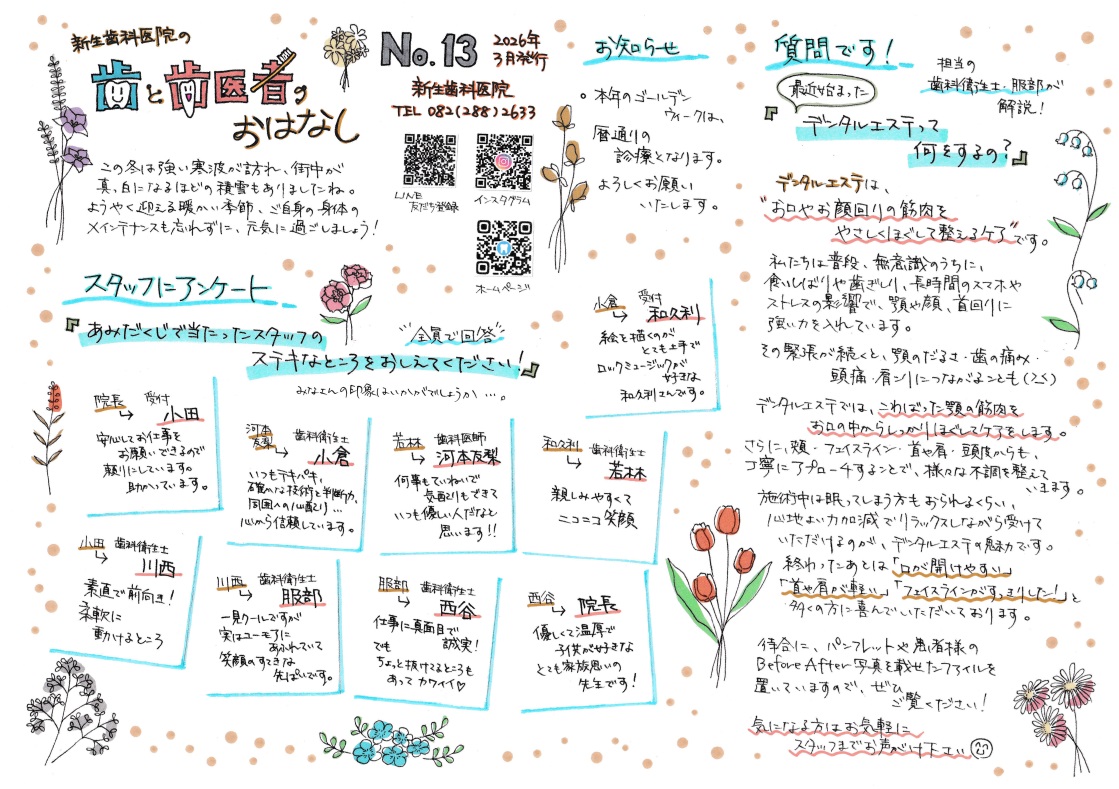 新生歯科医院の
歯と歯医者の
おはなし
No.13
2026年
3月発行
新生歯科医院
TEL 082(288)2633
LINE
友だち登録
インスタグラム
ホームページ
この冬は強い寒波が訪れ、街中が
真っ白になるほどの積雪もありましたね。
ようやく迎える暖かい季節、ご自身の身体の
メインテナンスも忘れずに、元気に過ごしましょう!
お知らせ
。本年のゴールデン
ウィークは、
暦通りの
診療となります。
よろしくお願い
いたします。
スタッフにアンケート
『あみだくじで当たったスタッフの
ステキなところをおしえてください!』
全員で回答
みなさんの印象はいかがでしょうか…。
院長→受付 小田
安心してお仕事を
お願いできるので
頼りにしています。
助かっています。
河本友梨→歯科衛生士 小倉
いつもテキパキ。
確かな技術と判断力、
周囲への心配り…
心から信頼しています。
若林→歯科医師 河本友梨
何事もていねいで
気配りもできて
いつも優しい人だなと
思います!!
和久利→歯科衛生士 若林
親しみやすくて
ニコニコ笑顔
小倉→受付 和久利
絵を描くのが
とても上手で
ロックミュージックが
好きな
和久利さんです。
小田→歯科衛生士 川西
素直で前向き!
柔軟に
動けるところ
川西→歯科衛生士 服部
一見クールですが
実はユーモアに
あふれていて
笑顔のすてきな
先ぱいです。
服部→歯科衛生士 西谷
仕事に真面目で
誠実!
でも
ちょっと抜けるところも
あってカワイイ♡
西谷→院長
優しくて温厚で
子供が好きな
とても家族思いの
先生です!
質問です!
担当の
歯科衛生士・服部が
解説!
最近始まった
『デンタルエステって
何をするの?』
デンタルエステは、
"お口やお顔回りの筋肉を
やさしくほぐして整えるケア"です。
私たちは普段、無意識のうちに、
食いしばりや歯ぎしり、長時間のスマホや
ストレスの影響で、顎や顔、首回りに
強い力を入れています。
その緊張が続くと、顎のだるさ・歯の痛み・
頭痛・肩コリにつながることも(>_<)
デンタルエステでは、こわばった顎の筋肉を
お口の中からしっかりほぐしてケアをします。
さらに、頬・フェイスライン・首や肩・頭皮からも、
丁寧にアプローチすることで、様々な不調を整えて
いきます。
施術中は眠ってしまう方もおられるくらい、
心地よい力加減でリラックスしながら受けて
いただけるのが、デンタルエステの魅力です。
終わったあとは「口が開けやすい」
「首や肩が軽い」「フェイスラインがすっきりした!」と
多くの方に喜んでいただいております。
待合に、パンフレットや患者様の
Before After写真を載せたファイルを
置いていますので、ぜひ
ご覧ください!
気になる方はお気軽に
スタッフまでお声がけ下さい